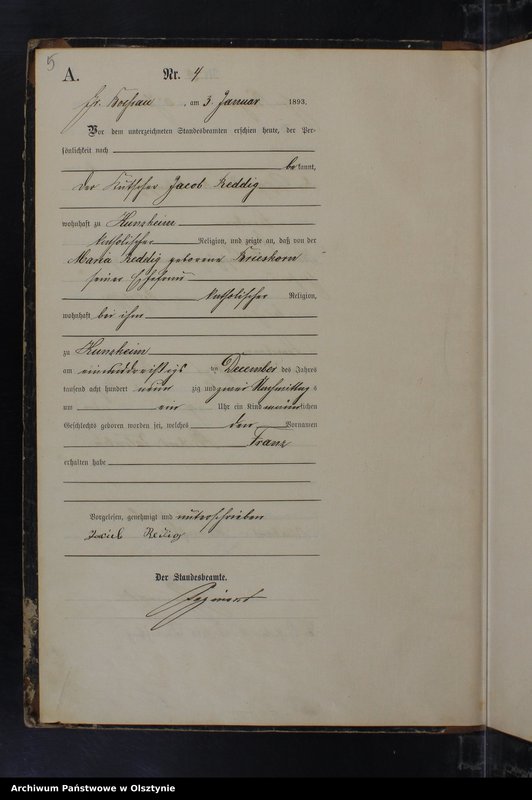 5
A.
Nr. 4
Gr. Bössau, am 3. Januar 1893.
Vor dem unterzeichneten Standesbeamten erschien heute, der Per-
sönlichkeit nach
be kannt,
der Kutscher Jacob Reddig
wohnhaft zu
katholischer Religion, und zeigte an, daß von der
Maria Reddig geborene Krieshorn
seiner Ehefrau
katholischer Religion,
wohnhaft bei ihm
zu
am einunddreißigs ten December des Jahres
tausend acht hundert neun zig und zwei Nachmittag s
um ein Uhr ein Kind männlichen
Geschlechts geboren worden sei, welches den Vornamen
Franz
erhalten habe
Vorgelesen, genehmigt und unterschrieben
Jacob Reddig
Der Standesbeamte.
Archiwum Państwowe w Olsztynie